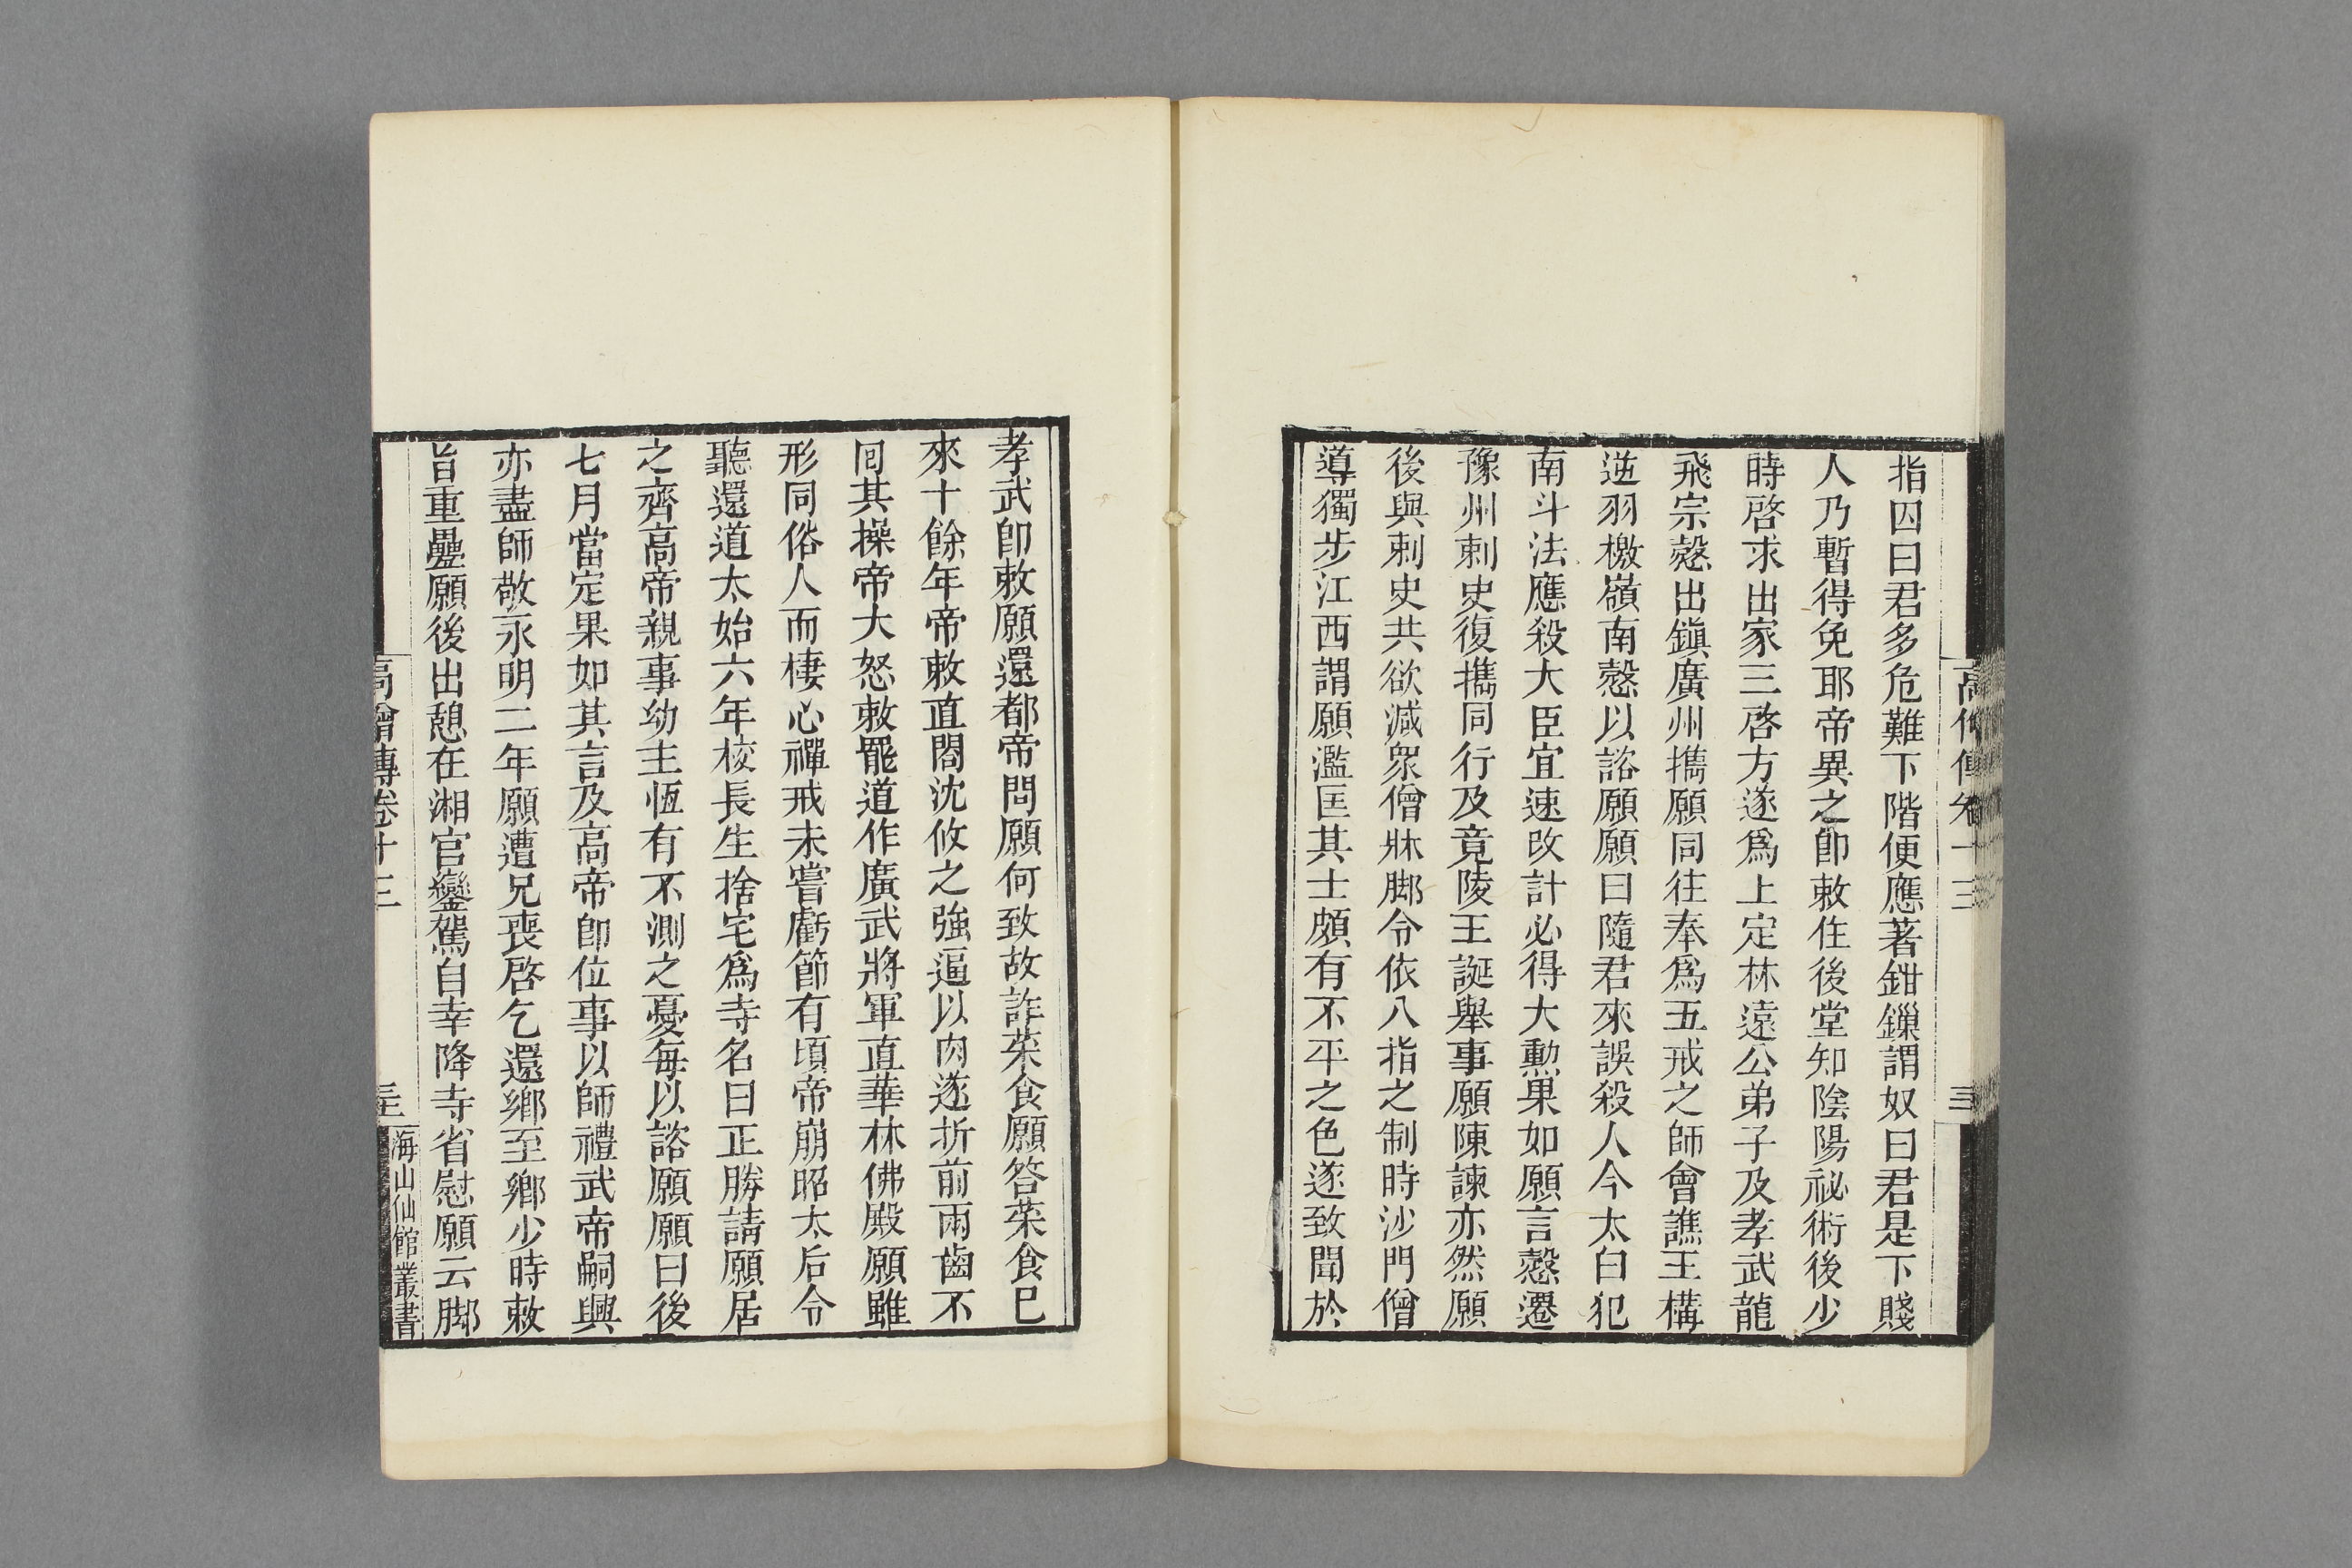 指囚曰君多危難下階便應著鉗鏁謂奴曰君是下賤
人乃暫得免耶帝異之卽敕住後堂知陰陽祕術後少
時啓求出家三啓方遂爲上定林遠公弟子及孝武龍
飛宗慤出鎭廣州攜願同往奉爲五戒之師會譙王構
逆羽檄嶺南慤以諮願願曰隨君來誤殺人今太白犯
南斗法應殺大臣宜速改計必得大勳果如願言慤遷
豫州刺史復攜同行及竟陵王誕舉事願陳諫亦然願
後與刺史共欲減衆僧牀脚令依八指之制時沙門僧
導獨步江西謂願濫匡其士頗有不平之色遂致聞於
孝武卽敕願還都帝問願何致故詐菜食願答菜食已
來十餘年帝敕直閤沈攸之強逼以肉遂折前兩齒不
囘其操帝大怒敕罷道作廣武將軍直華林佛殿願雖
形同俗人而棲心禪戒未嘗虧節有頃帝崩昭太后令
聽還道太始六年校長生捨宅爲寺名曰正勝請願居
之齊高帝親事幼主恆有不測之憂每以諮願願曰後
七月當定果如其言及高帝卽位事以師禮武帝嗣興
亦盡師敬永明二年願遭兄喪啓乞還鄉至鄉少時敕
旨重疊願後出憩在湘官鑾駕自幸降寺省慰願云脚
高僧傳卷十三
海山仙館叢書